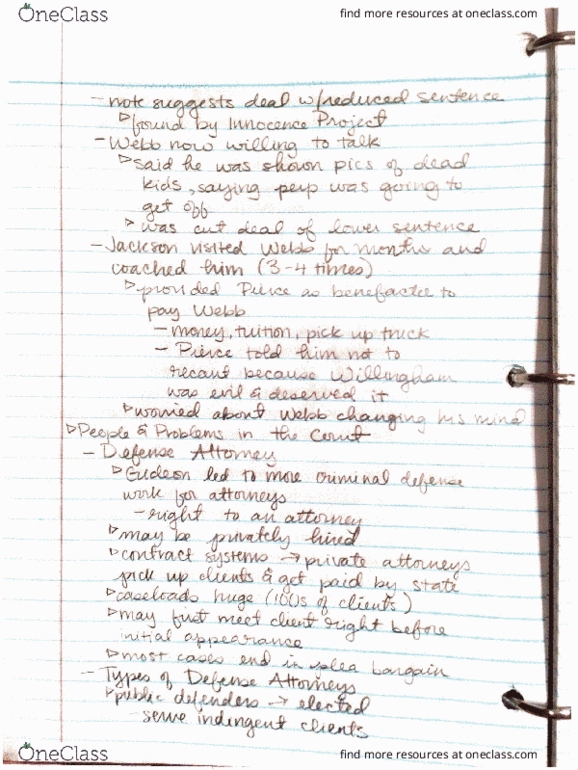 OneClass
find more resources at oneclass.com
- note suggests deal w/reduced sentence
▷ found by Innocence Project
- Webb now willing to talk
▷ said he was shown pics of dead
kids, saying perp was going to
get off
▷ was cut deal of lower sentence
- Jackson visited Webb for months and
coached him (3-4 times)
▷ provided Pierce as benefactor to
pay Webb
- money, tuition, pick up truck
- Pierce told him not to
recant because Willingham
was evil & deserved it
▷ worried about Webb changing his mind
▷ People & Problems in the Court
- Defense Attorney
▷ Gideon led to more criminal defense
work for attorneys
- right to an attorney
▷ may be privately hired
▷ contract systems → private attorneys
pick up clients & get paid by state
▷ caseloads huge (100s of clients)
▷ may just meet client right before
initial appearance
▷ most cases end in plea bargain
- Types of Defense Attorneys
▷ public defenders → elected
- serve indingent clients
OneClass
find more resources at oneclass.com